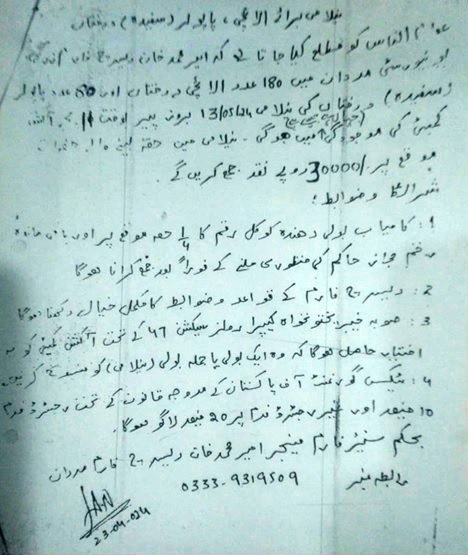 نیلامی برائے الائچی، پاپولر (سفیدہ) درختان
عوام الناس کو مطلع کیا جاتا ہے کہ امیر محمد خان ریسرچ فارم
یونیورسٹی مردان میں 180 عدد الائچی درختان اور 80 عدد پاپولر
(سفیدہ) درختان کی نیلامی 13/05/24 بروز پیر بوقت 11 بجے آکشن
کمیٹی کی موجودگی میں ہوگی۔ نیلامی میں حصہ لینے والے حضرات
موقع پر 30000/ روپے نقد جمع کریں گے۔
شرائط و ضوابط:
1: کامیاب بولی دھندہ کو کل رقم کا 1/4 حصہ موقع پر اور باقی ماندہ
رقم مجاز حاکم کی منظوری ملنے کے فوراً بعد جمع کرانا ہوگا
2: ریسرچ فارم کے قواعد و ضوابط کا مکمل خیال رکھنا ہوگا
3: صوبہ خیبر پختونخواہ کیپرا رولز سیکشن 47 کے تحت آکشن کمیٹی کو یہ
اختیار حاصل ہوگا کہ وہ ایک بولی یا جملہ بولی (نیلامی) کو منسوخ کریں۔
4: ٹیکس گورنمنٹ آف پاکستان کے مروجہ قانون کے تحت رجسٹرڈ فرم
10 فیصد اور غیر رجسٹرڈ فرم پر 20 فیصد لاگو ہوگا۔
بحکم سنیئر فارم مینیجر امیر محمد خان ریسرچ فارم مردان
رابطہ نمبر 0333-9319509
JAN
23-04-024